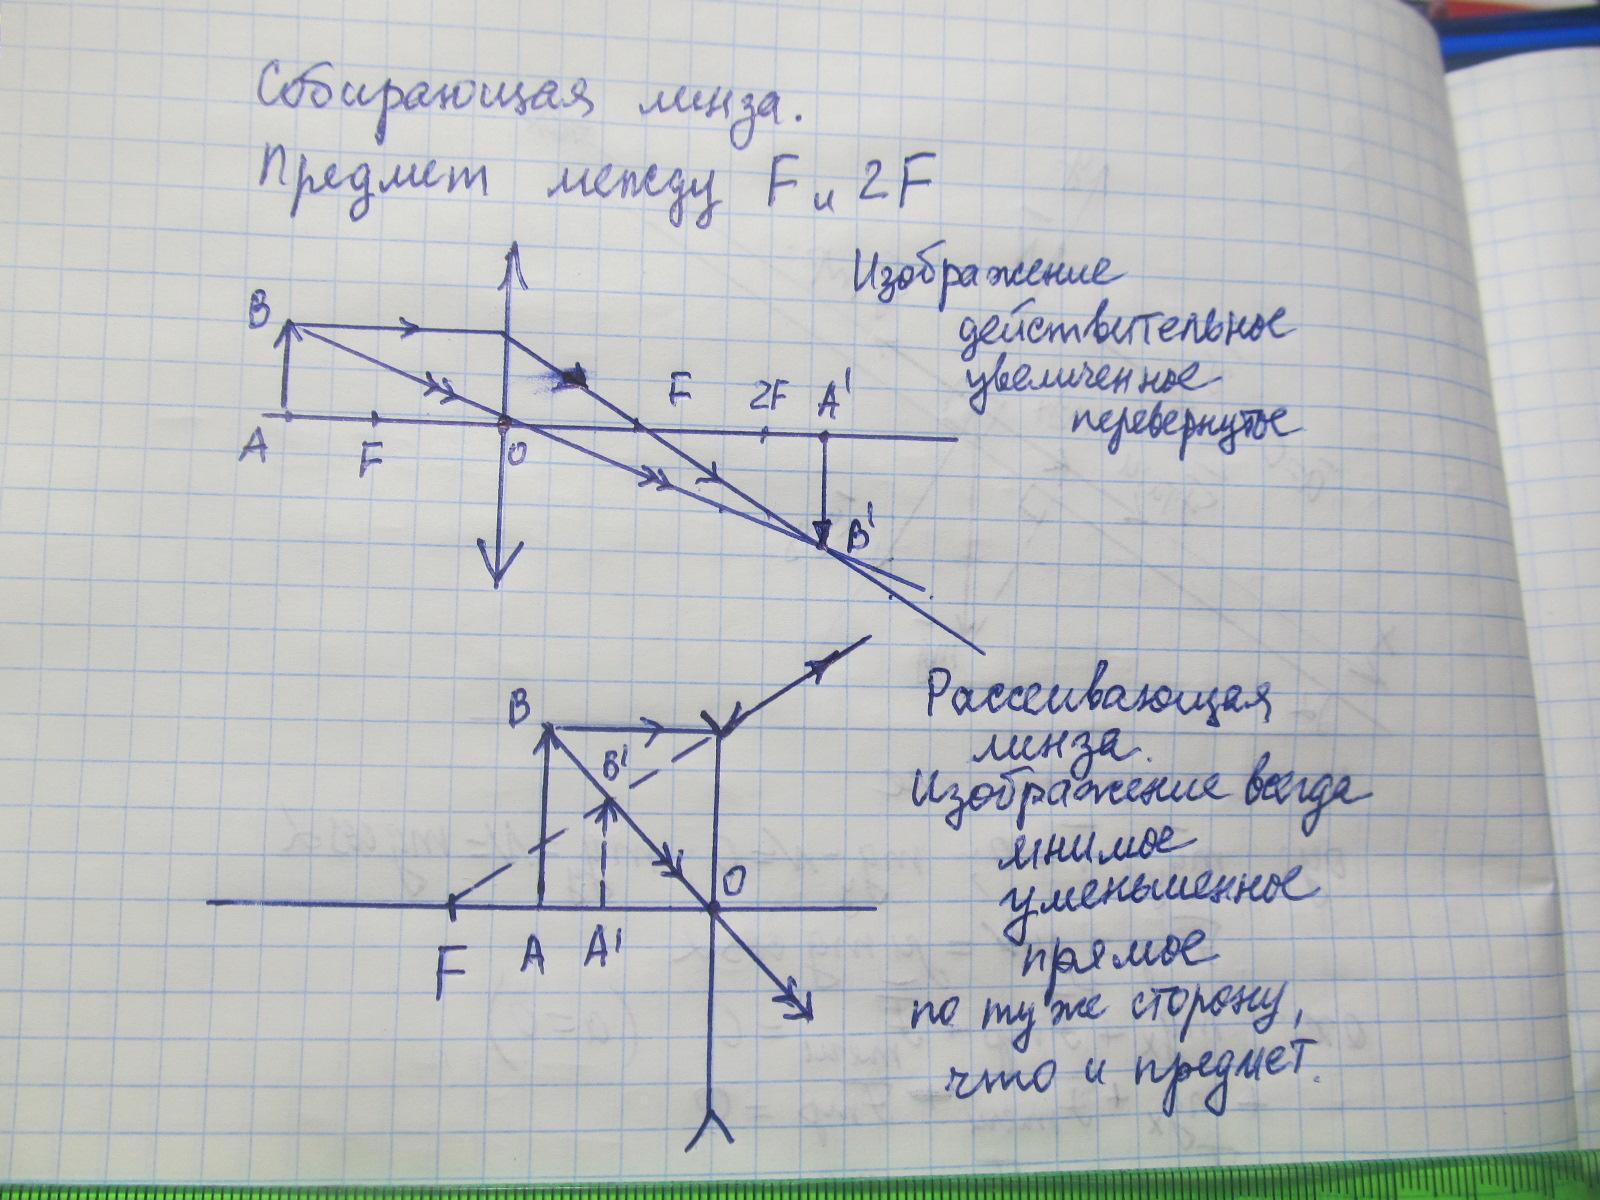 Собирающая линза.
Предмет между F и 2F
Изображение
действительное
увеличенное
перевернутое
B
F 2F A'
A F O
B'
Рассеивающая
линза.
Изображение всегда
мнимое
уменьшенное
прямое
по ту же сторону,
что и предмет.
B
B'
O
F A A'